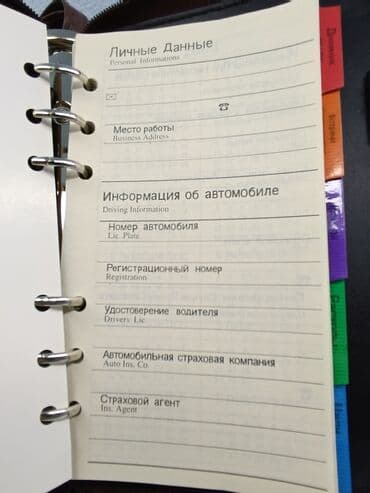 Личные Данные
Personal Informations
✉
☎
Место работы
Business Address
Информация об автомобиле
Driving Information
Номер автомобиля
Lic. Plate
Регистрационный номер
Registration
Удостоверение водителя
Drivers Lic.
Автомобильная страховая компания
Auto Ins. Co.
Страховой агент
Ins. Agent